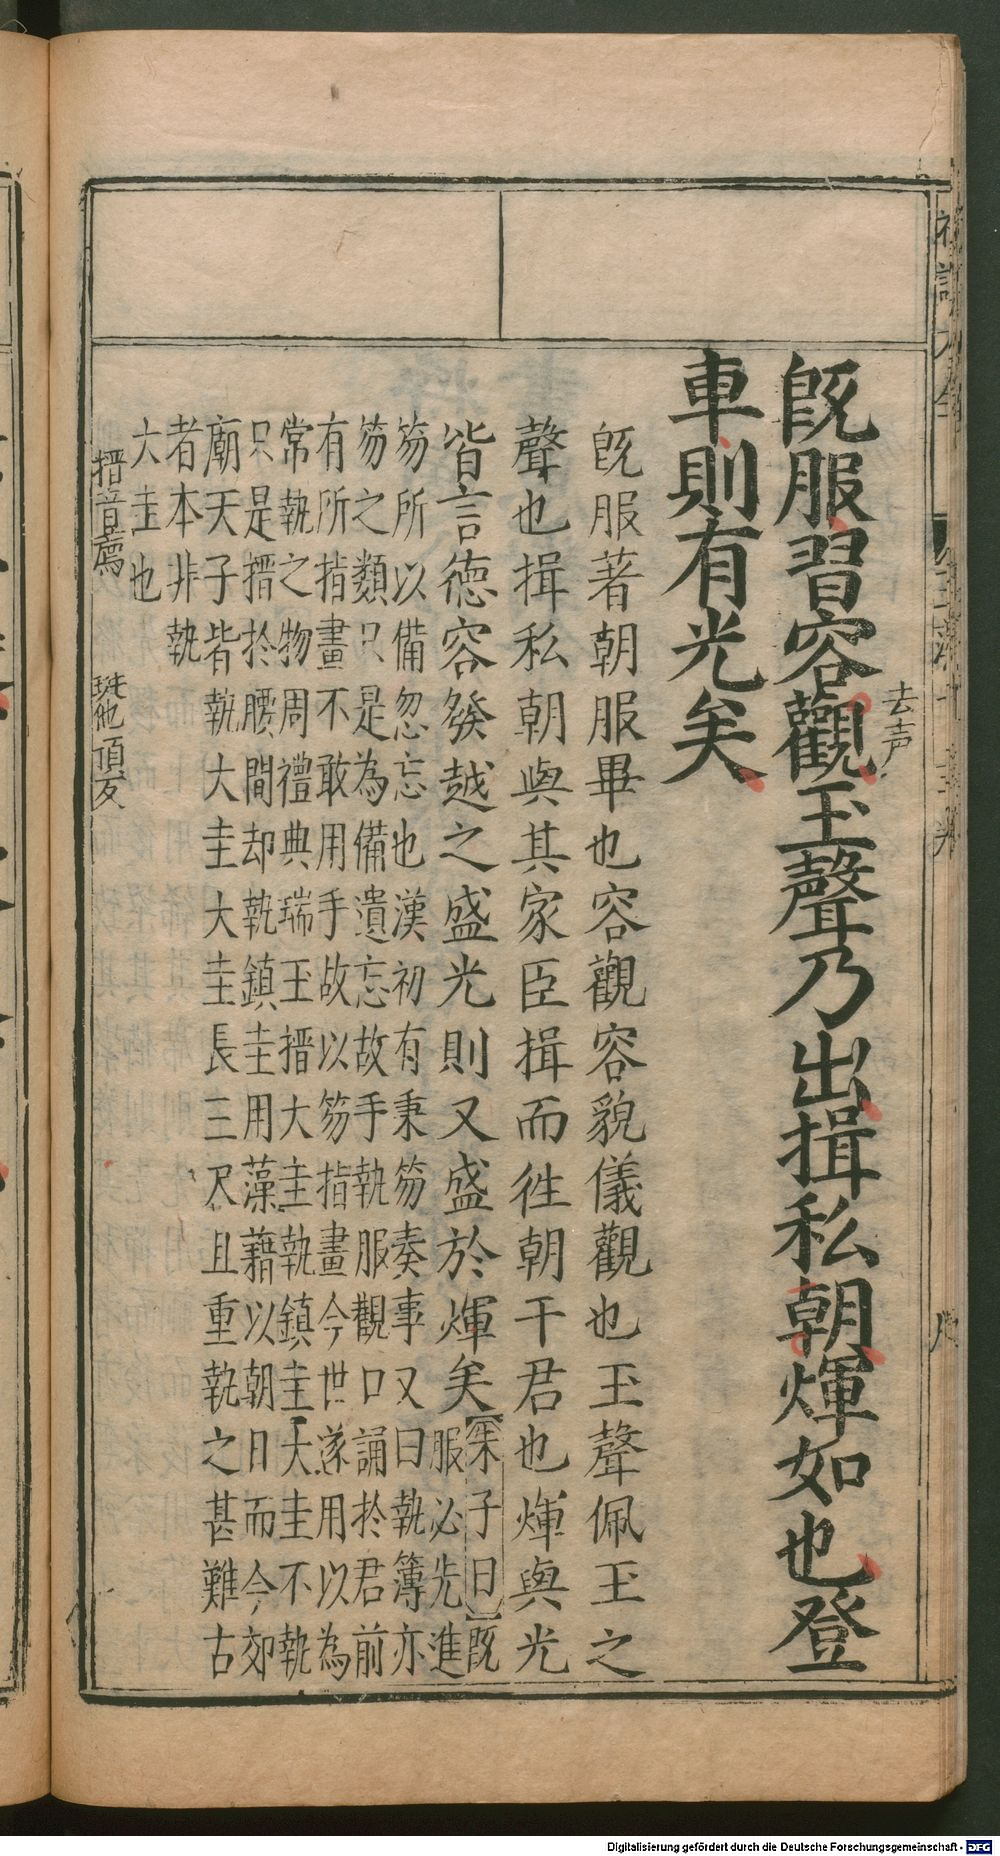 去声
既服習容觀玉聲乃出揖私朝煇如也登
車則有光矣
既服著朝服畢也容觀容貌儀觀也玉聲佩玉之
聲也揖私朝與其家臣揖而徃朝干君也煇與光
皆言德容發越之盛光則又盛於煇矣【朱子曰】既
服必先進
笏所以備忽忘也漢初有秉笏奏事又曰執簿亦
笏之類只是為備遺忘故手執服觀口誦於君前
有所指畫不敢用手故以笏指畫今世遂用以為
常執之物周禮典瑞玉搢大圭執鎮圭大圭不執
只是搢於腰間却執鎮圭用藻藉以朝日而今郊
廟天子皆執大圭大圭長三尺且重執之甚難古
者本非執
大圭也
搢音薦 珽他頂友
Digitalisierung gefördert durch die Deutsche Forschungsgemeinschaft - DFG